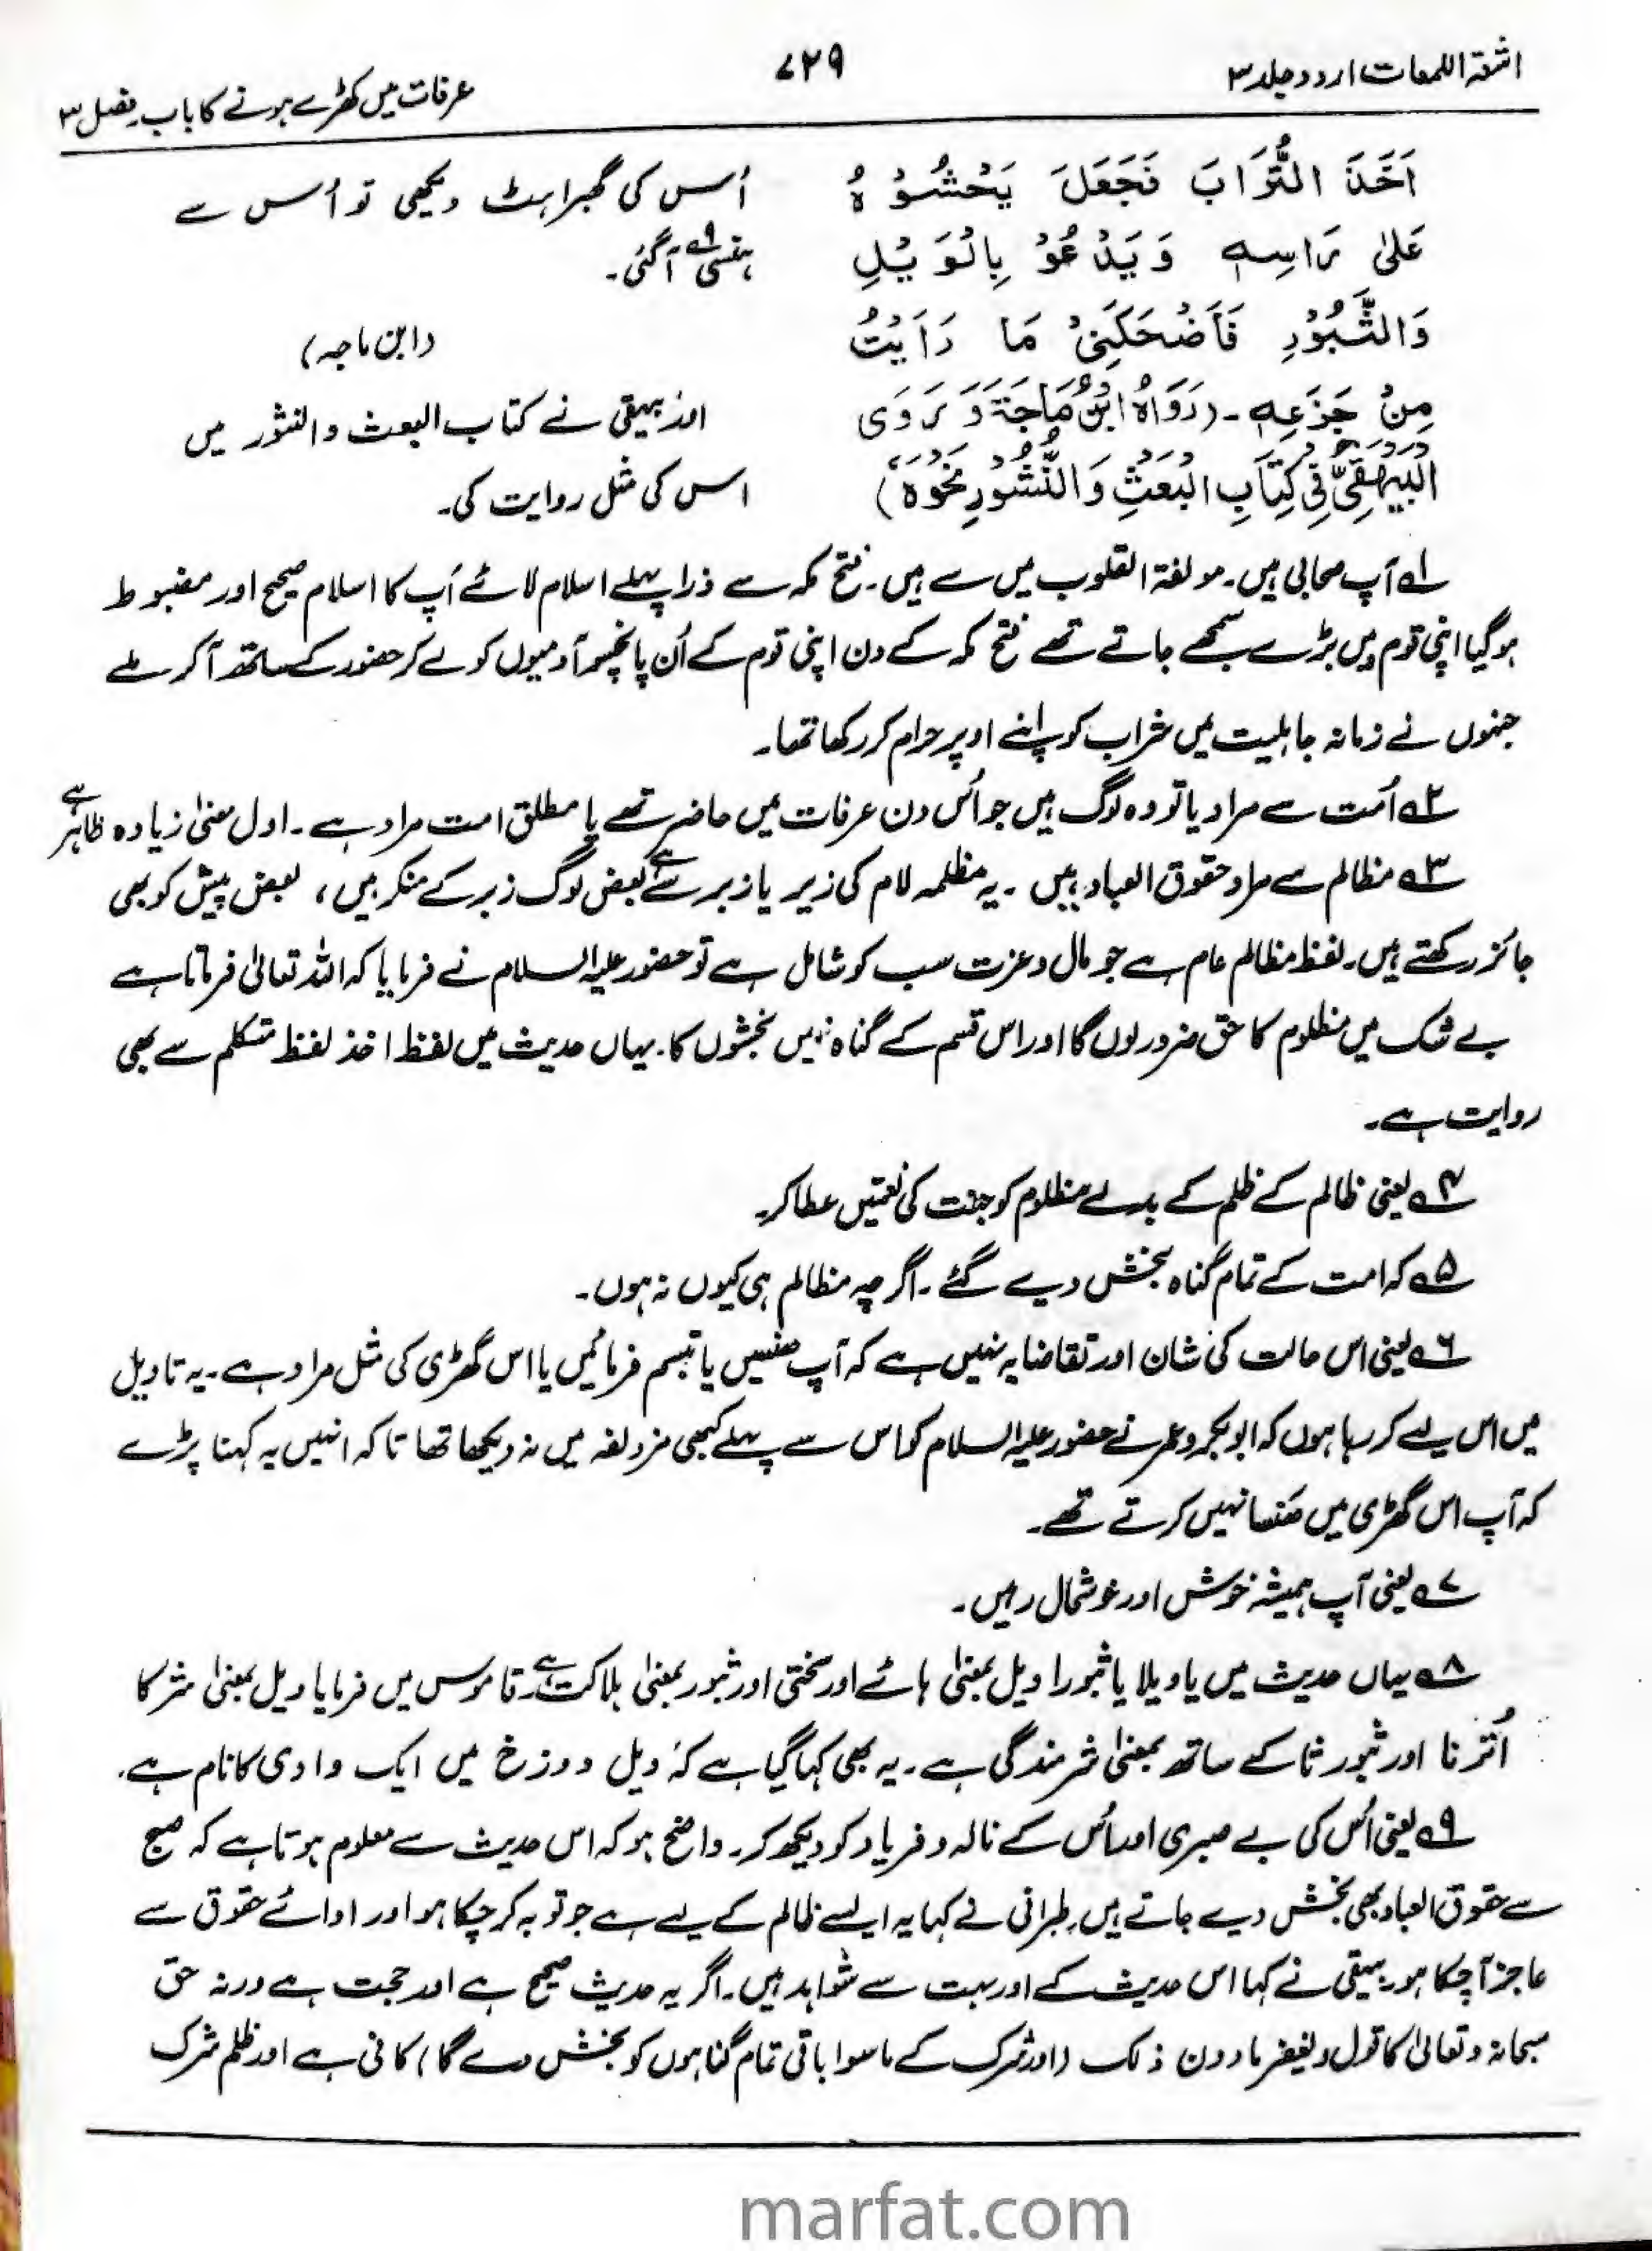 اشعۃ اللمعات اردو جلد ۳
۷۲۹
عرفات میں کھڑے ہونے کا باب۔ فصل ۳
اَخَذَ التُّرَابَ فَجَعَلَ یَحْشُوْہُ
عَلیٰ رَاسِہٖ وَیَدْعُوْ بِالْوَیْلِ
وَالثُّبُوْرِ فَاَضْحَکَنِیْ مَا رَاَیْتُ
مِنْ جَزَعِہٖ۔ (رَوَاہُ ابْنُ مَاجَۃَ وَ رَوَی
الْبَیْھَقِیُّ فِیْ کِتَابِ الْبَعَثِ وَالنُّشُوْرِ نَحْوَہٗ)
اُس کی گھبراہٹ دیکھی تو اُس سے
ہنسی ۹ آگئی۔
(ابن ماجہ)
اور بیہقی نے کتاب البعث والنشور میں
اس کی مثل روایت کی۔
۱ آپ صحابی ہیں۔ مولفۃ القلوب میں سے ہیں۔ فتح مکہ سے ذرا پہلے اسلام لائے آپ کا اسلام صحیح اور مضبوط
ہوگیا اپنی قوم میں بڑے سمجھے جاتے تھے فتح مکہ کے دن اپنی قوم کے اُن پانچسو آدمیوں کو لے کر حضور کے ساتھ آکر ملے
جنہوں نے زمانہ جاہلیت میں شراب کو اپنے اوپر حرام کر رکھا تھا۔
۲ اُمت سے مراد یا تو وہ لوگ ہیں جو اُس دن عرفات میں حاضر تھے یا مطلق امت مراد ہے۔ اول معنیٰ زیادہ ظاہر ہے
۳ مظالم سے مراد حقوق العباد ہیں۔ یہ مظلمہ لام کی زیر یا زبر سے ہے بعض لوگ زبر کے منکر ہیں، بعض پیش کو بھی
جائز رکھتے ہیں۔ لفظ مظالم عام ہے جو مال و عزت سب کو شامل ہے تو حضور علیہ السلام نے فرمایا کہ اللہ تعالیٰ فرماتا ہے
بے شک میں مظلوم کا حق ضرور لوں گا اور اس قسم کے گناہ نہیں بخشوں گا۔ یہاں حدیث میں لفظ اخذ لفظ متکلم سے بھی
روایت ہے۔
۴ یعنی ظالم کے ظلم کے بدلے مظلوم کو جنت کی نعمتیں عطا کر۔
۵ کہ امت کے تمام گناہ بخش دیے گئے۔ اگرچہ مظالم ہی کیوں نہ ہوں۔
۶ یعنی اس حالت کی شان اور تقاضا یہ نہیں ہے کہ آپ ہنسیں یا تبسم فرمائیں یا اس گھڑی کی مثل مراد ہے۔ یہ تاویل
میں اس لیے کر رہا ہوں کہ ابوبکر و عمر نے حضور علیہ السلام کو اس سے پہلے کبھی مزدلفہ میں نہ دیکھا تھا تاکہ انہیں یہ کہنا پڑے
کہ آپ اس گھڑی میں ہنسا نہیں کرتے تھے۔
۷ یعنی آپ ہمیشہ خوش اور خوشحال رہیں۔
۸ یہاں حدیث میں یا ویلا یا ثبورا ویل بمعنیٰ ہائے اور سختی اور ثبور بمعنیٰ ہلاکت ہے۔ قاموس میں فرمایا ویل بمعنیٰ شر کا
اُترنا اور ثبور ثا کے ساتھ بمعنیٰ شرمندگی ہے۔ یہ بھی کہا گیا ہے کہ ویل دوزخ میں ایک وادی کا نام ہے۔
۹ یعنی اُس کی بے صبری اور اُس کے نالہ و فریاد کو دیکھ کر۔ واضح ہو کہ اس حدیث سے معلوم ہوتا ہے کہ حج
سے حقوق العباد بھی بخش دیے جاتے ہیں۔ طبرانی نے کہا یہ ایسے ظالم کے لیے ہے جو توبہ کر چکا ہو اور ادائے حقوق سے
عاجز آچکا ہو۔ بیہقی نے کہا اس حدیث کے اور بہت سے شواہد ہیں۔ اگر یہ حدیث صحیح ہے اور حجت ہے ورنہ حق
سبحانہ و تعالیٰ کا قول ویغفر مادون ذلک (اور شرک کے ماسوا باقی تمام گناہوں کو بخش دے گا) کافی ہے اور ظلم شرک
marfat.com